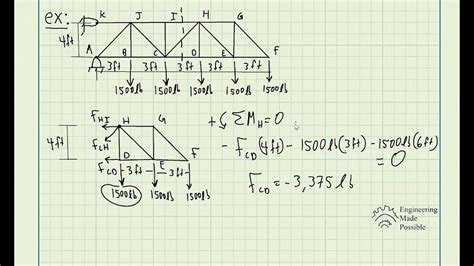 ex:
K J I 1 H G
4ft
A B C D E F
3ft 3ft 3ft 3ft 3ft
1500lb 1500lb 1500lb 1500lb 1500lb
F_HI H G
4ft F_CH
F_CD D 3ft E 3ft F
1500lb 1500lb 1500lb
+ ΣM_H=0
- F_CD(4ft) - 1500lb(3ft) - 1500lb(6ft)
= 0
F_CD = -3,375 lb
Engineering
Made
Possible